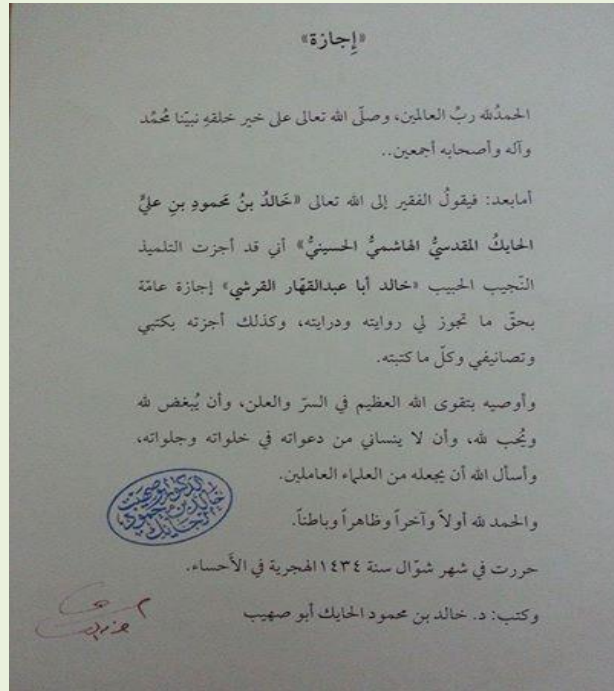 «إِجازة»
الحمدُلله ربُّ العالمين، وصلّى الله تعالى على خير خلقهِ نبيّنا مُحمّد
وآله وأصحابه أجمعين..
أمابعد: فيقولُ الفقير إلى الله تعالى «خَالدُ بنُ مَحمودِ بنِ عليٍّ
الحايكُ المقدسيُّ الهاشميُّ الحسينيُّ» أني قد أجزت التلميذ
النّجيب الحبيب «خالد أبا عبدالقهّار القرشي» إجازة عامّة
بحقّ ما تجوز لي روايته ودرايته، وكذلك أجزته بكتبي
وتصانيفي وكلّ ماكتبته.
وأوصيه بتقوى الله العظيم في السرّ والعلن، وأن يُبغض لله
ويُحب لله، وأن لا ينساني من دعواته في خلواته وجلواته،
وأسأل الله أن يجعله من العلماء العاملين.
والحمد لله أولاً وآخراً وظاهراً وباطناً.
حررت في شهر شوّال سنة ١٤٣٤الهجرية في الأَحساء.
وكتب: د. خالد بن محمود الحايك أبو صهيب